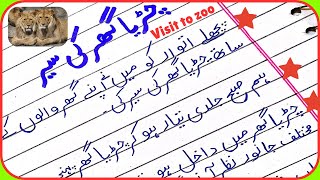 چڑیا گھر کی سیر
Visit to zoo
پچھلے اتوار کو میں اپنے گھر والوں کے
ساتھ چڑیا گھر کی سیر کی۔
ہم صبح جلدی تیار ہو کر چڑیا گھر
چڑیا گھر میں داخل ہو
مختلف جانور نظر آ